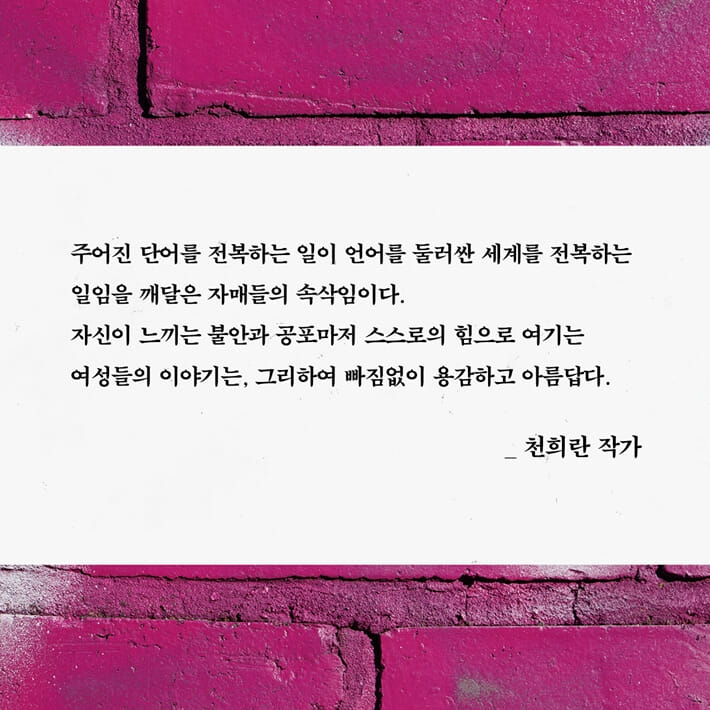 주어진 단어를 전복하는 일이 언어를 둘러싼 세계를 전복하는
일임을 깨달은 자매들의 속삭임이다.
자신이 느끼는 불안과 공포마저 스스로의 힘으로 여기는
여성들의 이야기는, 그리하여 빠짐없이 용감하고 아름답다.
_ 천희란 작가